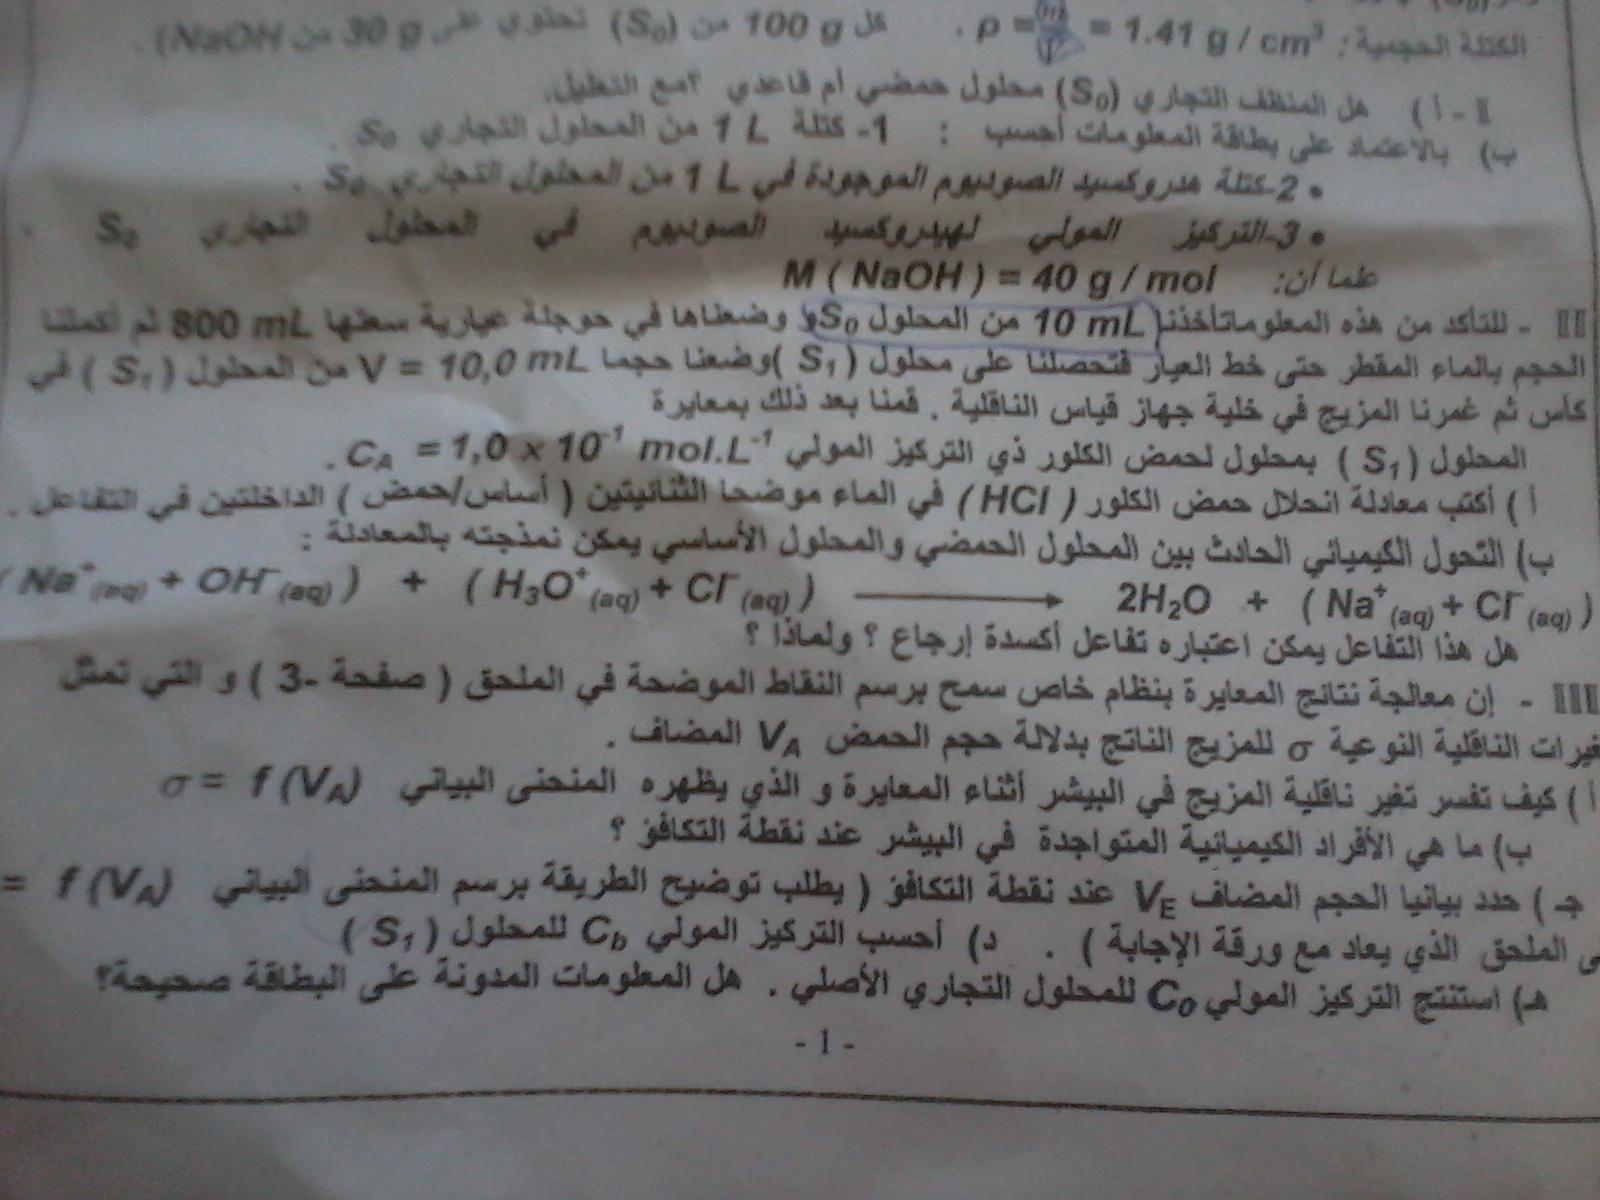 الكتلة الحجمية : ρ = = 1.41 g / cm³ . كل 100 g من (S₀) تحتوي على 30 g من NaOH) .
I - أ ) هل المنظف التجاري (S₀) محلول حمضي أم قاعدي ؟مع التعليل.
ب) بالاعتماد على بطاقة المعلومات أحسب : 1- كتلة 1 L من المحلول التجاري S₀ .
• 2-كتلة هدروكسيد الصوديوم الموجودة في 1 L من المحلول التجاري S₀ .
• 3-التركيز المولي لهيدروكسيد الصوديوم في المحلول التجاري S₀ .
علما أن: M ( NaOH ) = 40 g / mol
II - للتأكد من هذه المعلوماتأخذنا 10 mL من المحلول S₀و وضعناها في حوجلة عيارية سعتها 800 mL ثم أكملنا
الحجم بالماء المقطر حتى خط العيار فتحصلنا على محلول ( S₁ )وضعنا حجما V = 10,0 mL من المحلول ( S₁ ) في
كأس ثم غمرنا المزيج في خلية جهاز قياس الناقلية . قمنا بعد ذلك بمعايرة
المحلول ( S₁ ) بمحلول لحمض الكلور ذي التركيز المولي C_A = 1,0 x 10⁻¹ mol.L⁻¹ .
أ ) أكتب معادلة انحلال حمض الكلور ( HCl ) في الماء موضحا الثنائيتين ( أساس/حمض ) الداخلتين في التفاعل .
ب) التحول الكيميائي الحادث بين المحلول الحمضي والمحلول الأساسي يمكن نمذجته بالمعادلة :
( Na⁺(aq) + OH⁻(aq) ) + ( H₃O⁺(aq) + Cl⁻(aq) ) ⟶ 2H₂O + ( Na⁺(aq) + Cl⁻(aq) )
هل هذا التفاعل يمكن اعتباره تفاعل أكسدة إرجاع ؟ ولماذا ؟
III - إن معالجة نتائج المعايرة بنظام خاص سمح برسم النقاط الموضحة في الملحق ( صفحة -3 ) و التي تمثل
غيرات الناقلية النوعية σ للمزيج الناتج بدلالة حجم الحمض V_A المضاف .
أ ) كيف تفسر تغير ناقلية المزيج في البيشر أثناء المعايرة و الذي يظهره المنحنى البياني σ = f (V_A)
ب) ما هي الأفراد الكيميائية المتواجدة في البيشر عند نقطة التكافؤ ؟
جـ ) حدد بيانيا الحجم المضاف V_E عند نقطة التكافؤ ( يطلب توضيح الطريقة برسم المنحنى البياني = f (V_A)
ى الملحق الذي يعاد مع ورقة الإجابة ) . د) أحسب التركيز المولي C_b للمحلول ( S₁ )
هـ) استنتج التركيز المولي C₀ للمحلول التجاري الأصلي . هل المعلومات المدونة على البطاقة صحيحة؟
- 1 -